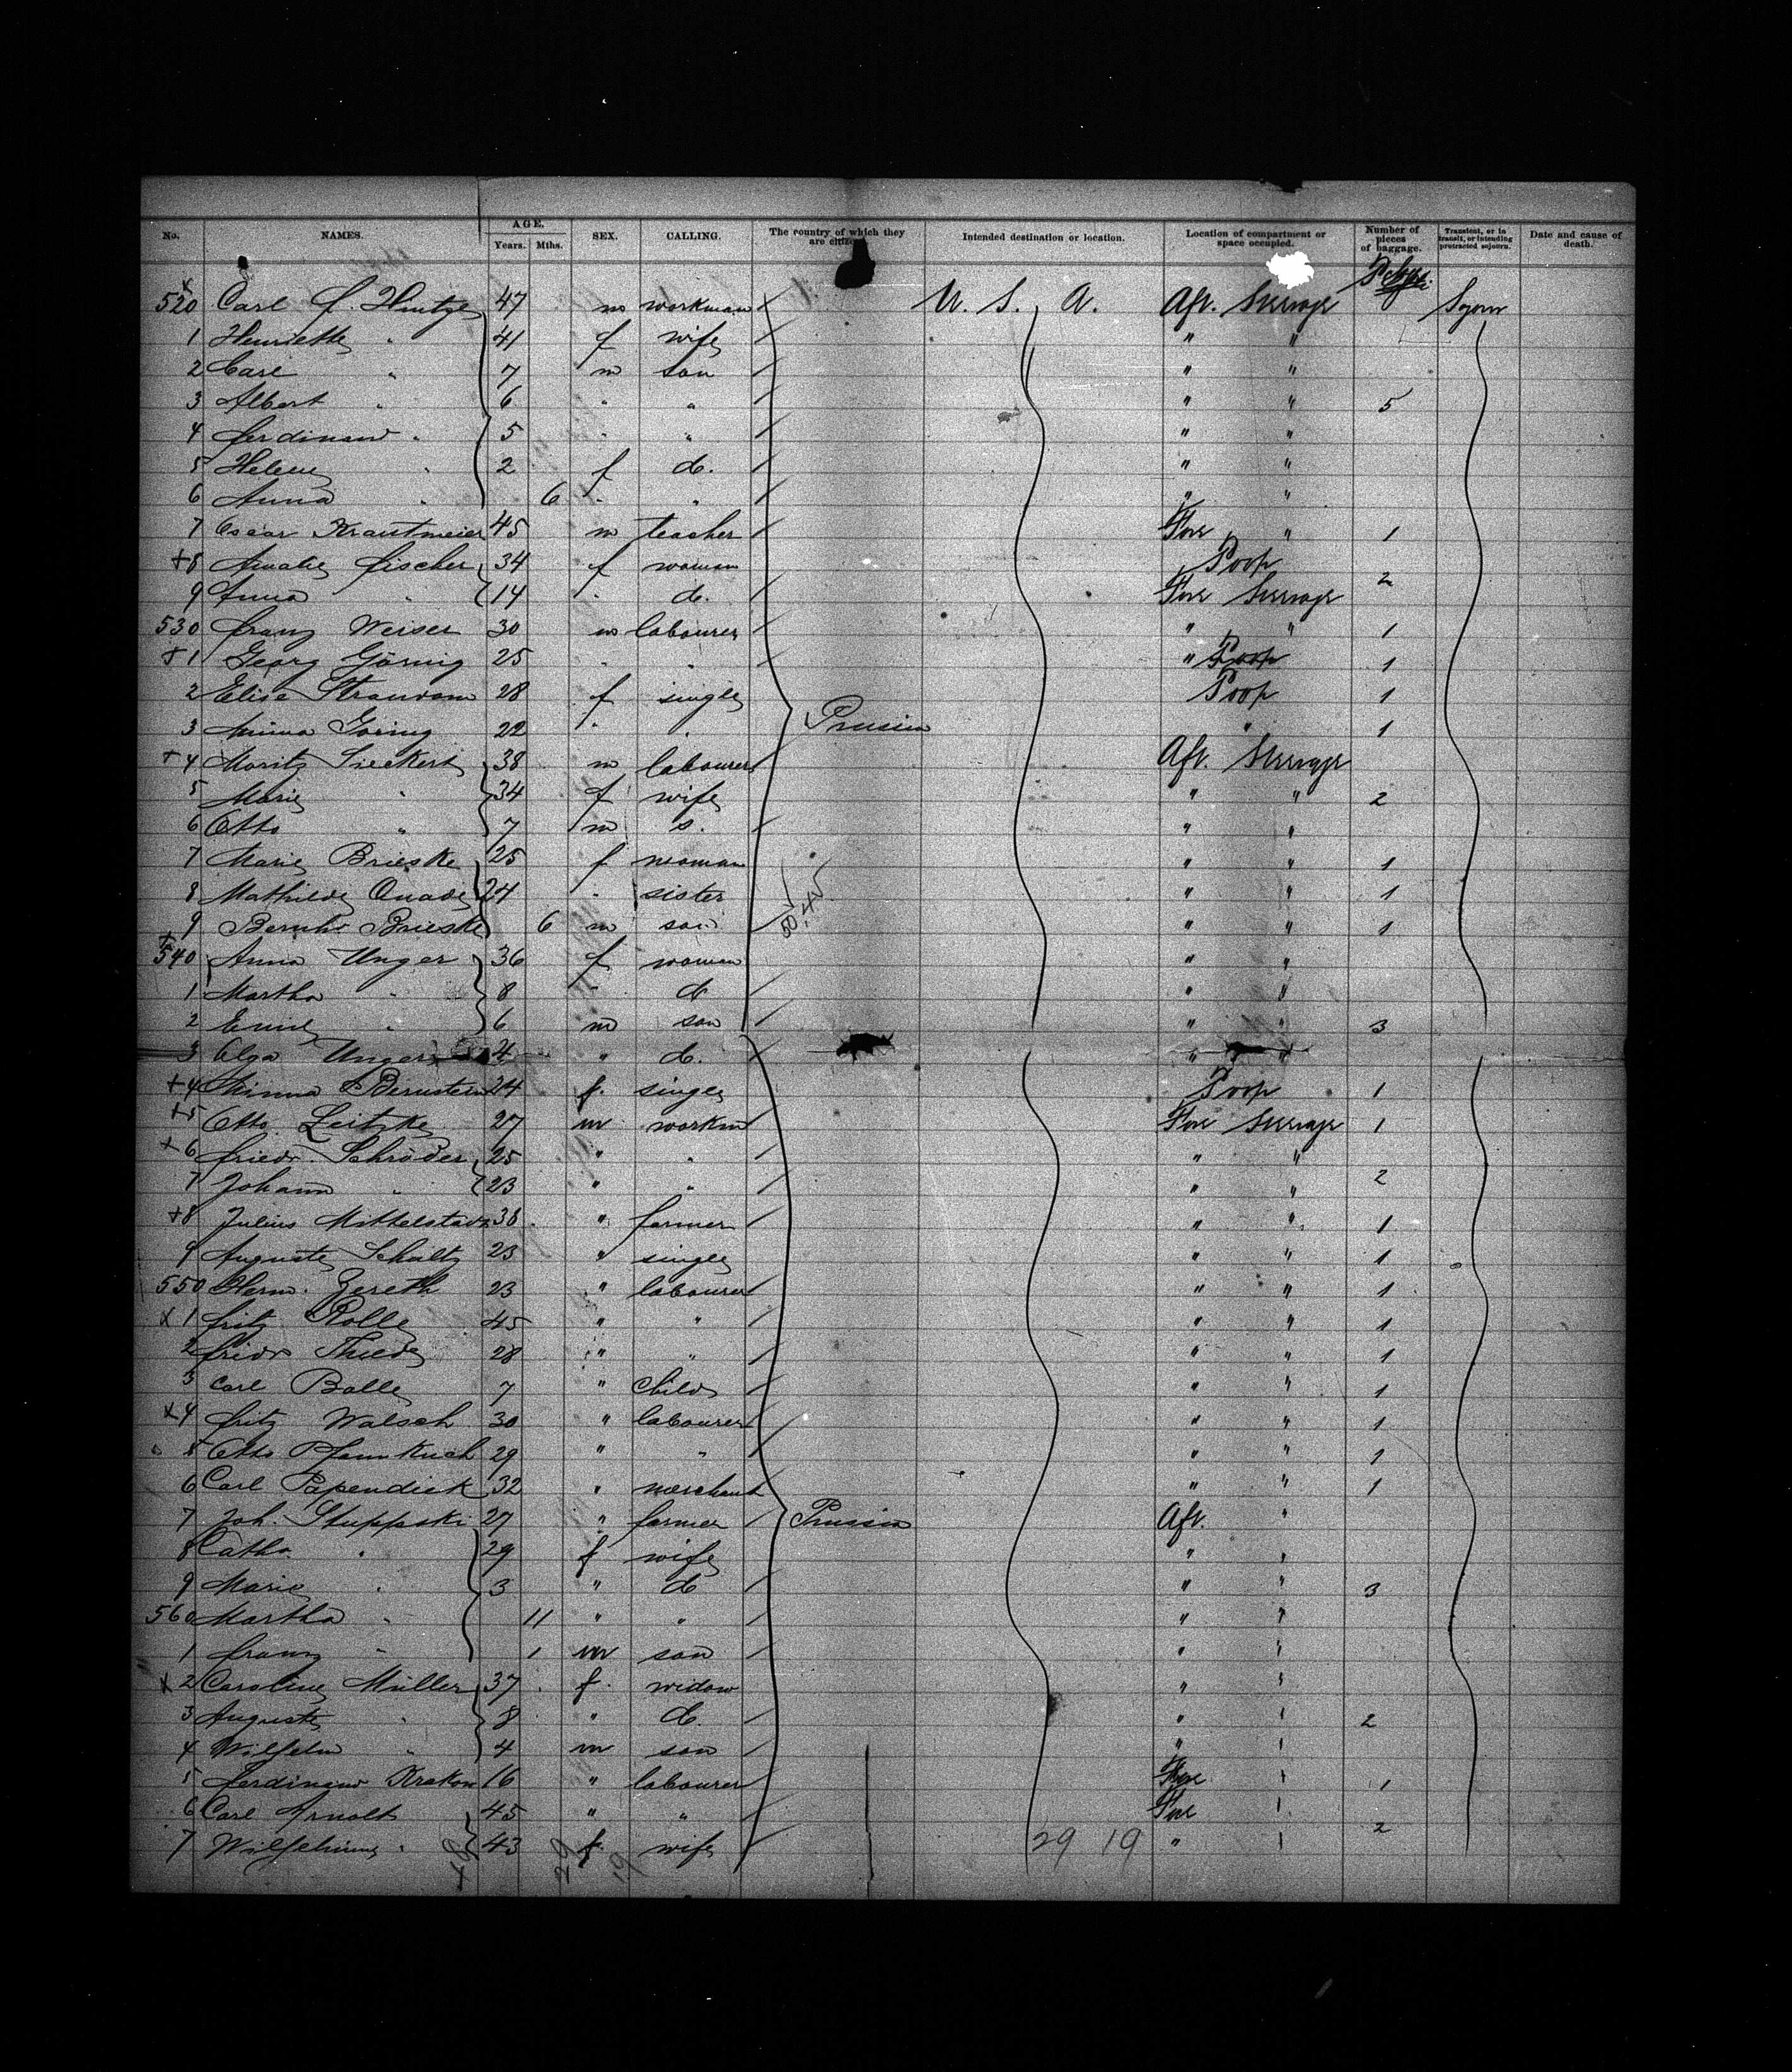 No. NAMES. AGE. Years. Mths. SEX. CALLING. The country of which they are citizens. Intended destination or location. Location of compartment or space occupied. Number of pieces of baggage. Transient, or in transit, or intending protracted sojourn. Date and cause of death.
x 520 Carl F. Hintze 47 m workman U. S. A. Aft. Steerage
1 Henriette " 41 f wife " "
2 Carl " 7 m son " "
3 Albert " 6 " " " " 5
4 Ferdinand " 5 " " " "
5 Helene " 2 f d. " "
6 Anna " 6 " " " "
7 Oscar Krautmeier 45 m teacher Fore " 1
+8 Amalie Fischer 34 f woman Poop
9 Anna " 14 " d. Fore Steerage 2
530 Franz Weiser 30 m labourer " " 1
+1 Georg Göring 25 " " " Poop 1
2 Elise 28 f single Poop 1
3 Minna Göring 22 " " Prussia " 1
+4 Moritz Sieckert 38 m labourer Aft. Steerage
5 Marie " 34 f wife " " 2
6 Otto " 7 m s. " "
7 Marie Brieske 25 f woman " " 1
8 Mathilde Quade 24 " sister " " 1
9 Bernh. Brieske 6 m son " " 1
+540 Anna Unger 36 f woman " "
1 Martha " 8 " d " "
2 Emil " 6 m son " " 3
3 Olga Unger 4 " d. " "
+4 Minna Bernstein 24 f. single Poop 1
+5 Otto Leitzke 27 m workm Fore Steerage 1
+6 Friedr. Schröder 25 " " " "
7 Johann " 23 " " " " 2
+8 Julius Mittelstadt 38 " farmer " " 1
9 Auguste Schultz 23 " single " " 1
550 Herm. Zereth 23 " labourer " " 1
x1 Fritz Rolle 45 " " " " 1
2 Friedr Thiede 28 " " " " 1
3 Carl Balle 7 " child " " 1
x4 Fritz Walsch 30 " labourer " " 1
5 Otto Pfannkuch 29 " " " " 1
6 Carl Papendick 32 " merchant " " 1
7 Joh. Stuppski 27 " farmer Prussia Aft. "
8 Catha. " 29 f wife " "
9 Marie " 3 " d " " 3
560 Martha " 11 " " " "
1 Franz " 1 m son " "
x2 Caroline Müller 37 f. widow " "
3 Auguste " 8 " d. " " 2
4 Wilhelm " 4 m son " "
5 Ferdinand Krakow 16 " labourer Fore " 1
6 Carl Arnolt 45 " " Fore "
7 Wilhelmine " 43 f. wife 29 19 " " 2
29 19